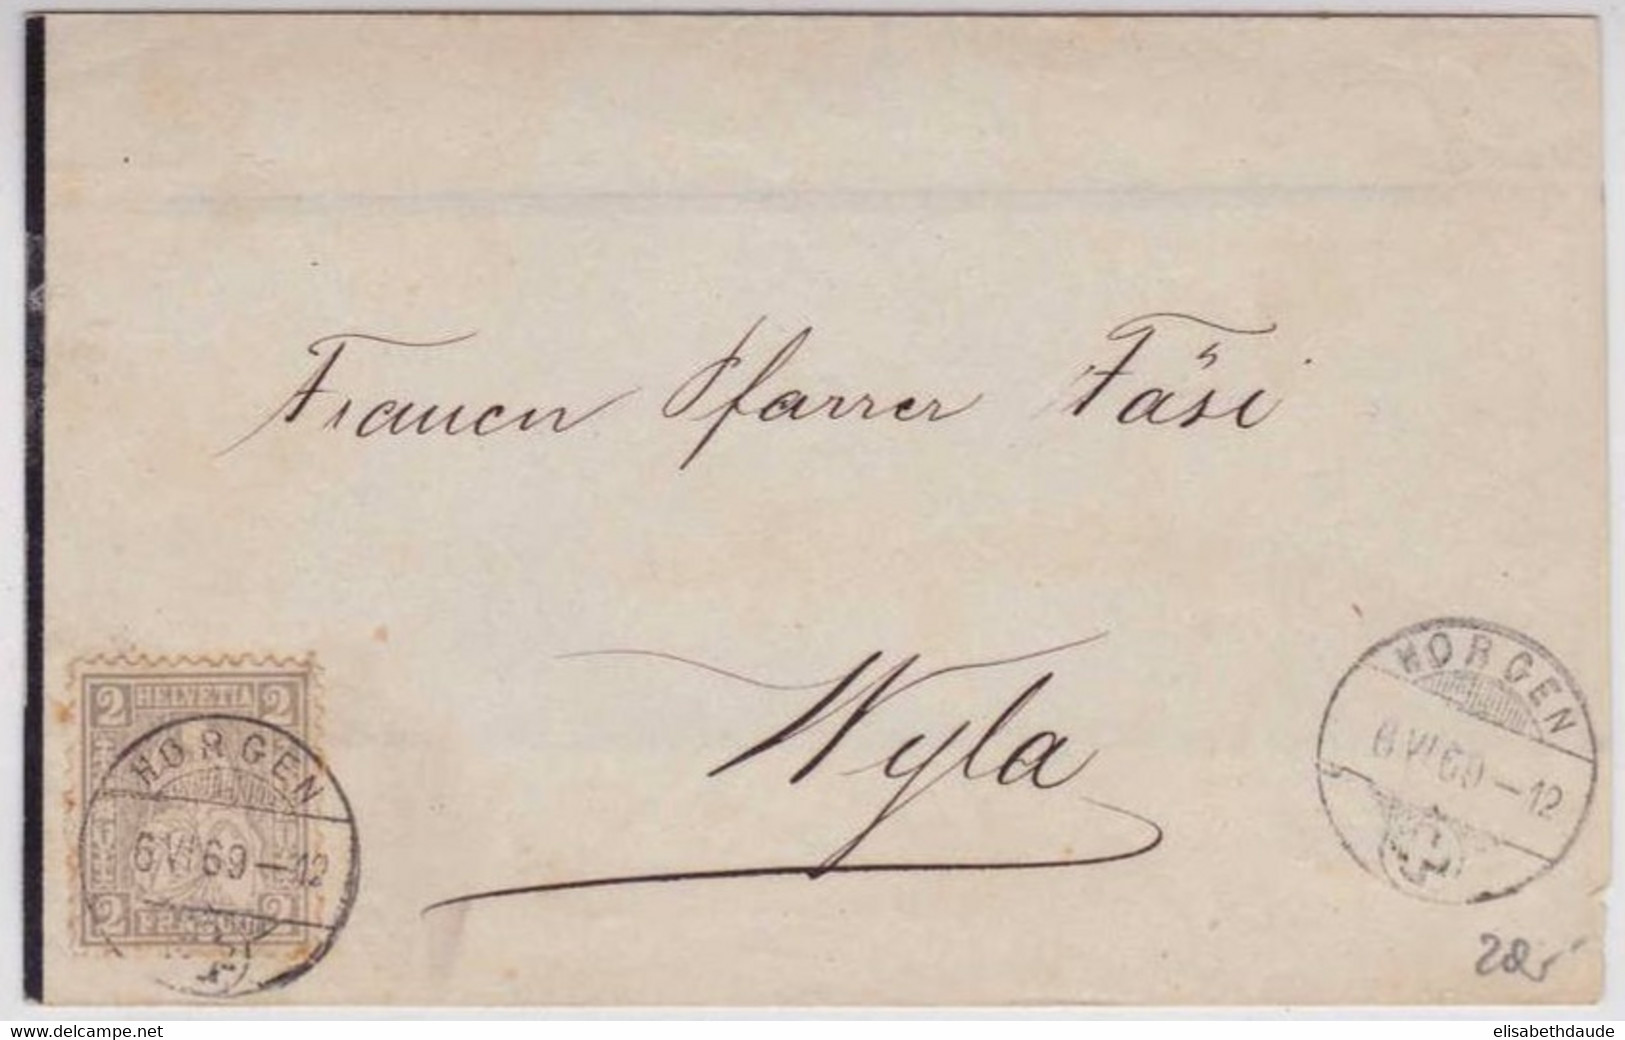 Frauen Pfarrer Fäsi
Wyla
2 HELVETIA 2
HORGEN
6 VI 69 – 12
2 FRANCO 2
HORGEN
6 VI 69 – 12
delcampe.net
elisabethdaude